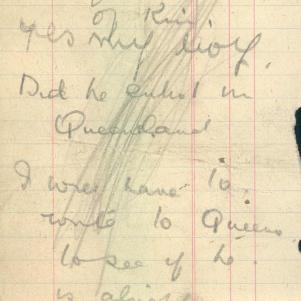 of Kin
yes my boy.
Did he enlist in
Queensland
I will have to
write to Queens
to see if he
is alright